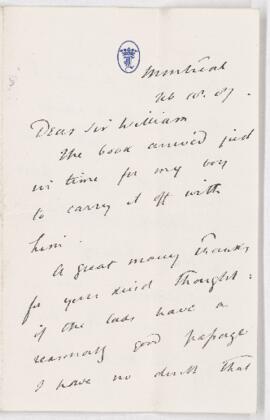 Montreal
Feb
Dear Sir William
The book arrived just
in time for my boy
to carry it off with
him.
A great many thanks
for your kind thought:
if the lads have a
reasonably good passage
I have no doubt that